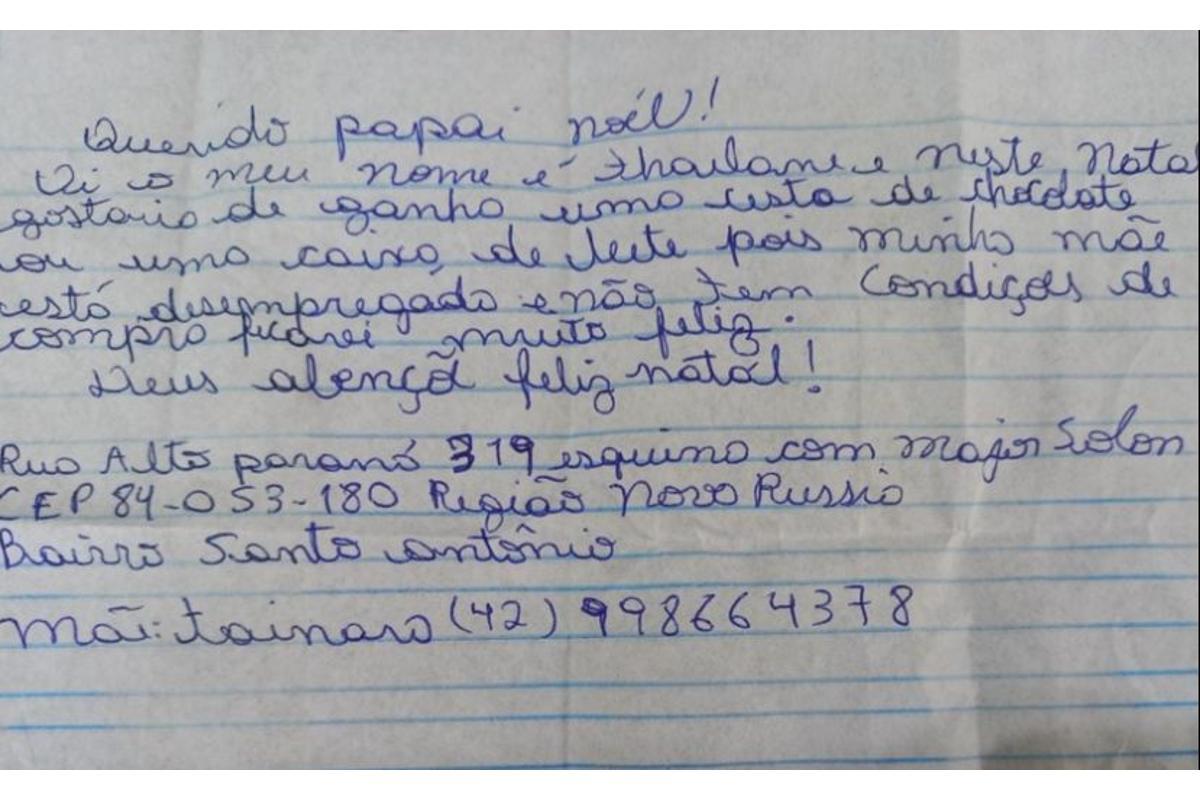 Querido papai nóel!
Oi o meu nome é thailane e neste Natal
gostaria de ganha uma cesta de chocolate
ou uma caixa de leite pois minha mãe
está desempregada e não tem Condições de
compra ficarei muito feliz.
Deus abençõa feliz natal!
Rua Alto paraná 319 esquina com major Solon
CEP 84-053-180 Região Nova Russia
Bairro Santo antônio
Mãe: tainara (42) 998664378